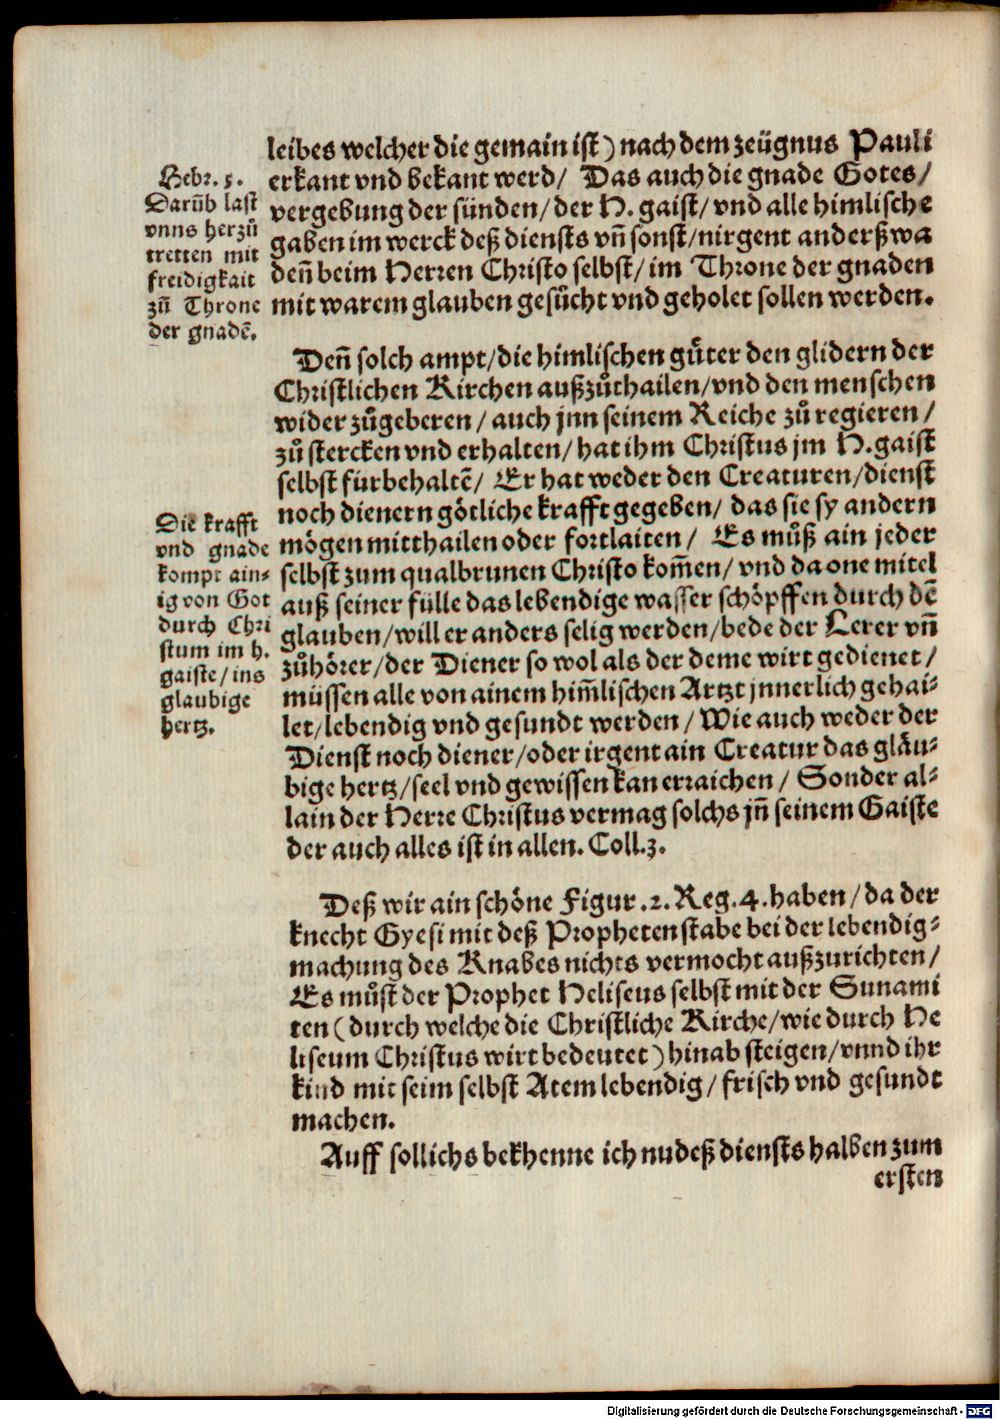 leibes welcher die gemain ist) nach dem zeügnus Pauli
erkant vnd bekant werd/ Das auch die gnade Gotes/
vergebung der sünden/der H. gaist/vnd alle himlische
gaben im werck deß diensts vn̄ sonst/nirgent anderßwa
den̄ beim Herren Christo selbst/im Throne der gnaden
mit warem glauben gesůcht vnd geholet sollen werden.
Hebr. 5.
Darūb last
vnns herzů
tretten mit
freidigkait
zů Throne
der gnadē.
Den̄ solch ampt/die himlischen gůter den glidern der
Christlichen Kirchen außzůthailen/vnd den menschen
wider zůgeberen/ auch jnn seinem Reiche zů regieren/
zů stercken vnd erhalten/hat ihm Christus jm H. gaist
selbst fürbehaltē/ Er hat weder den Creaturen/dienst
noch dienern götliche krafft gegeben/ das sie sy andern
mögen mitthailen oder fortlaiten/ Es můß ain jeder
selbst zum qualbrunen Christo kom̄en/ vnd da one mitel
auß seiner fülle das lebendige wasser schöpffen durch dē
glauben/will er anders selig werden/bede der Lerer vn̄
zůhörer/der Diener so wol als der deme wirt gedienet/
müssen alle von ainem him̄lischen Artzt jnnerlich gehai-
let/lebendig vnd gesundt werden/ Wie auch weder der
Dienst noch diener/oder irgent ain Creatur das gläu-
bige hertz/seel vnd gewissen kan erraichen/ Sonder al-
lain der Herre Christus vermag solchs jn̄ seinem Gaiste
der auch alles ist in allen. Coll.3.
Die krafft
vnd gnade
kompt ain-
ig von Got
durch Chri
stum im h.
gaiste/ins
glaubige
hertz.
Deß wir ain schöne Figur .2. Reg. 4. haben/da der
knecht Gyesi mit deß Propheten stabe bei der lebendig-
machung des Knabes nichts vermocht außzurichten/
Es můst der Prophet Heliseus selbst mit der Sunami
ten (durch welche die Christliche Kirche/wie durch He
liseum Christus wirt bedeutet) hinab steigen/vnnd ihr
kind mit seim selbst Atem lebendig/frisch vnd gesundt
machen.
Auff sollichs bekhenne ich nu deß diensts halben zum
ersten
Digitalisierung gefördert durch die Deutsche Forschungsgemeinschaft - DFG